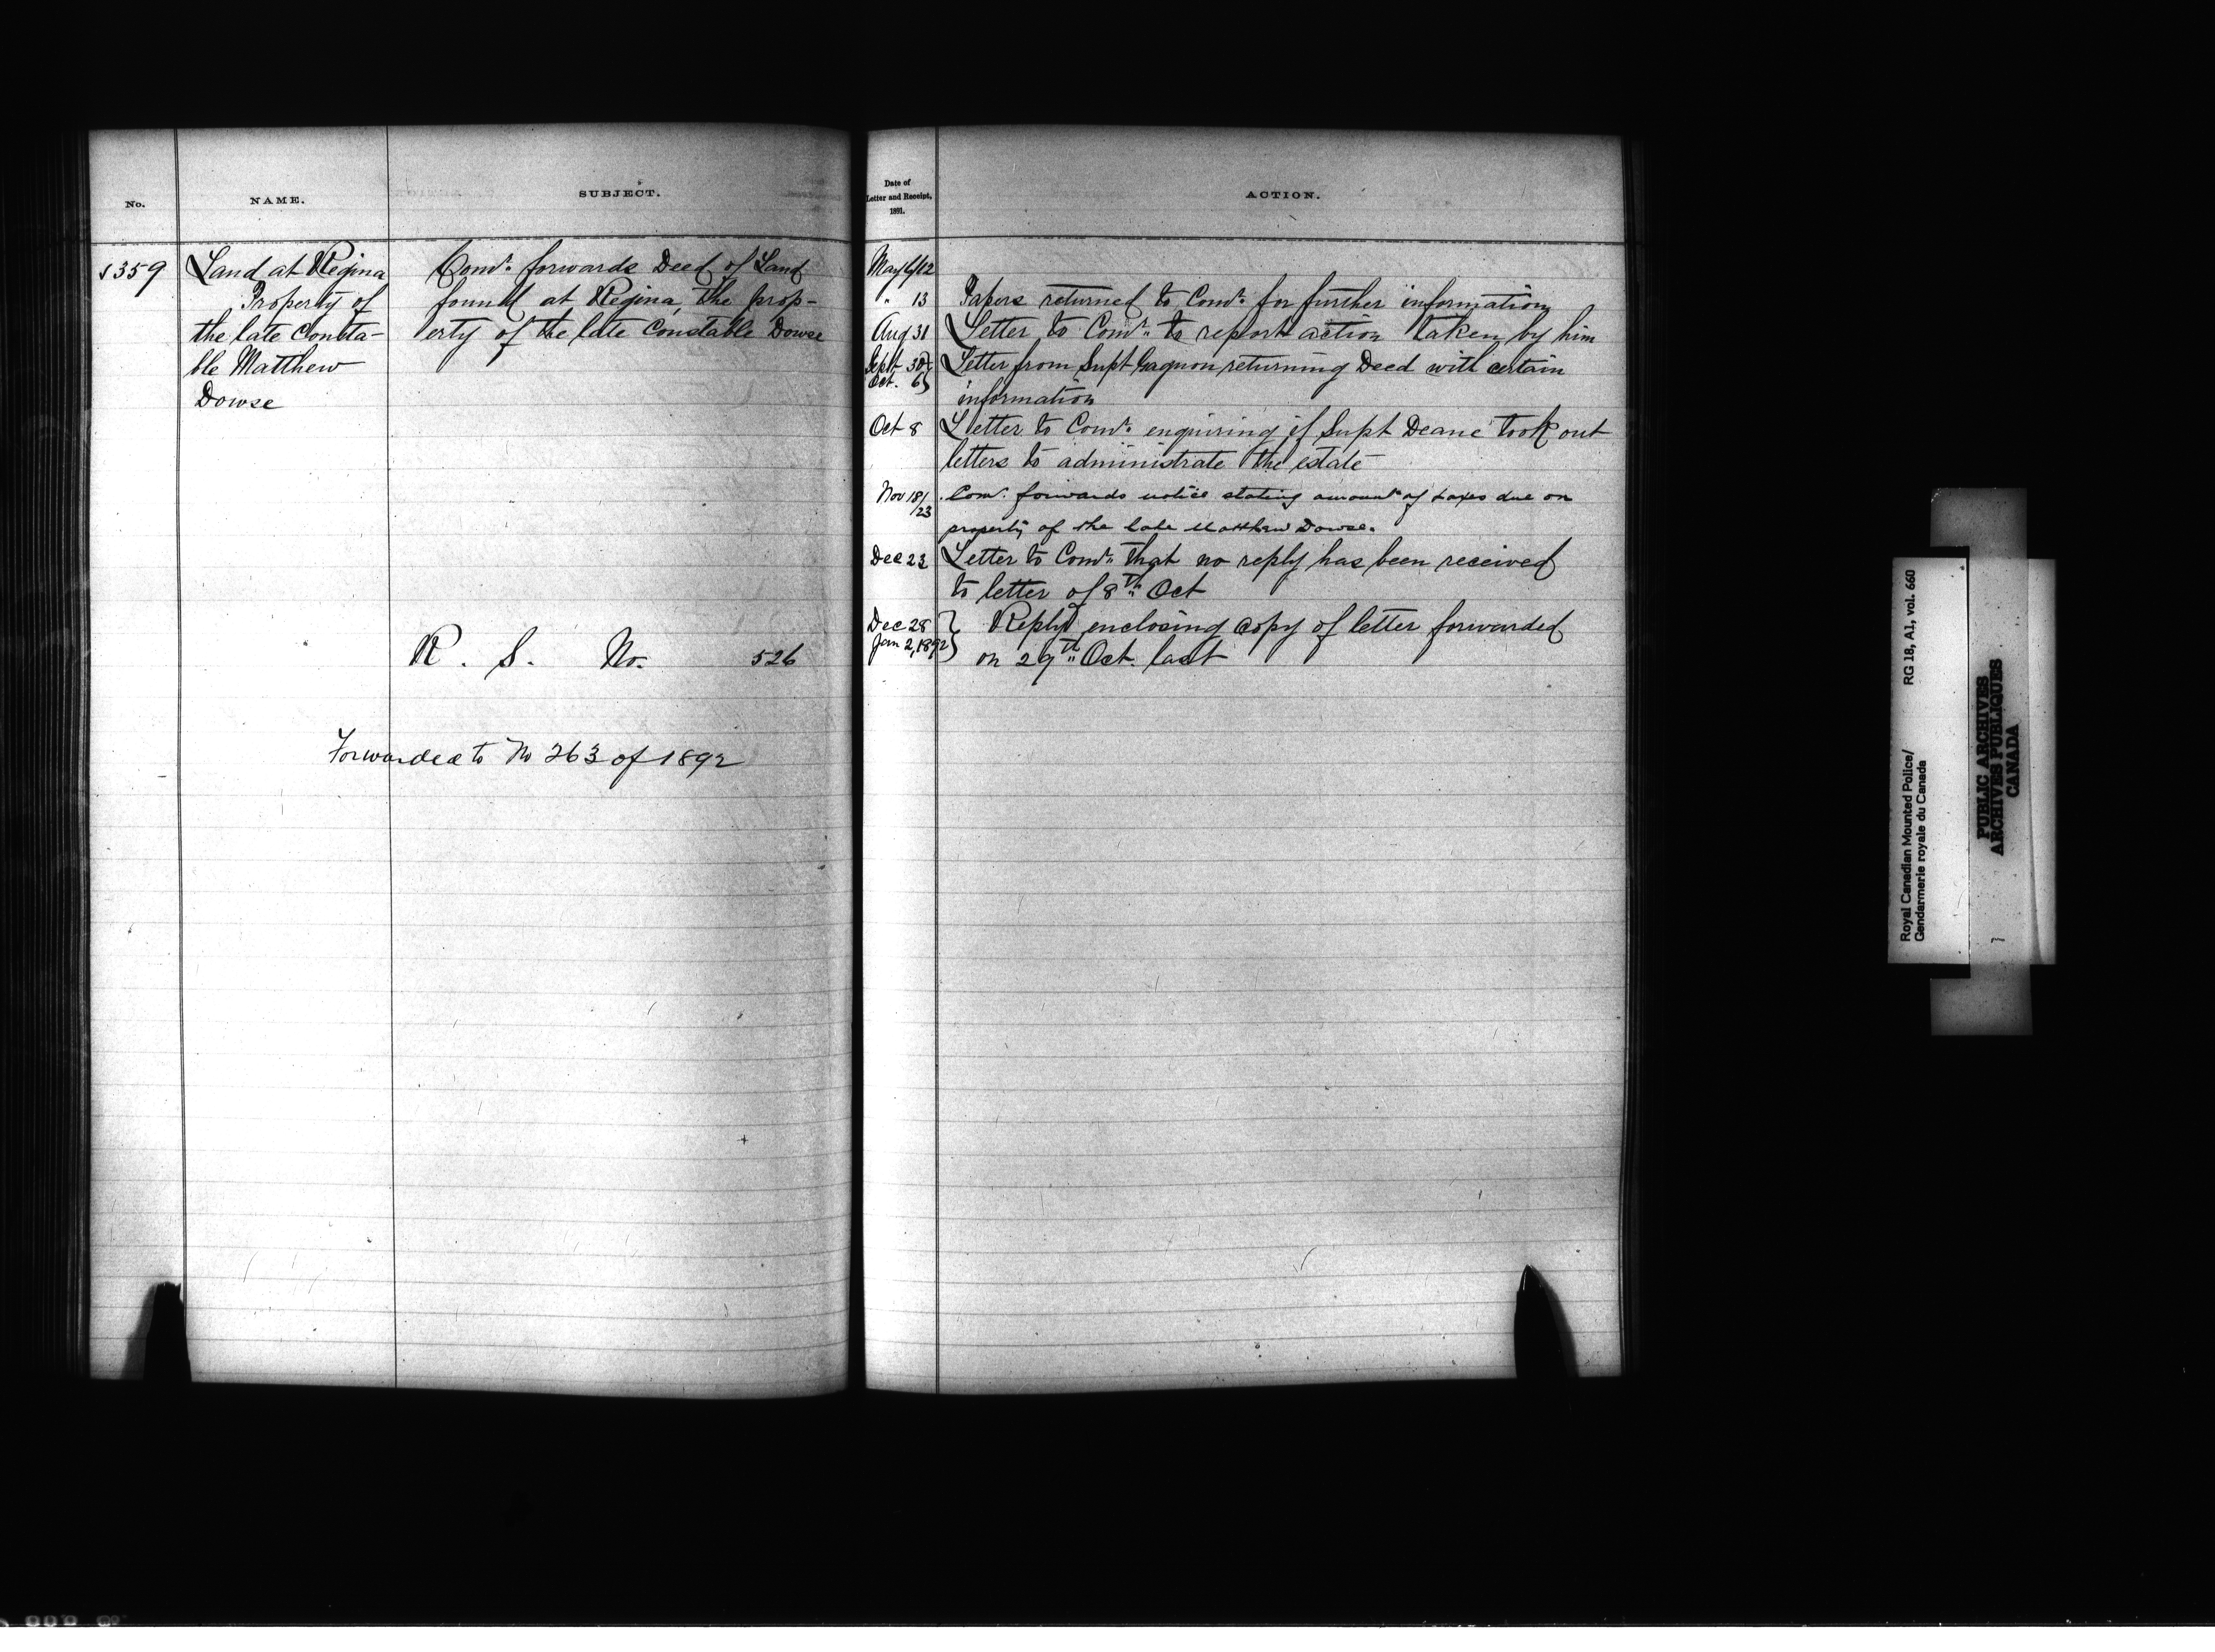 No.
NAME.
SUBJECT.
359
Land at Regina
Property of
the late Consta-
ble Matthew
Dowse
Comr. forwards Deed of Land
found at Regina, the prop-
erty of the late Constable Dowse
R. S. No. 526
Forwarded to No 263 of 1892
Date of
Letter and Receipt,
1891.
ACTION.
May 6/12
" 13 Papers returned to Comr. for further information
Aug 31 Letter to Comr. to report action taken by him
Sept 30 Letter from Supt Gagnon returning Deed with certain
Oct. 6 information
Oct 8 Letter to Comr. enquiring if Supt Deane took out
letters to administrate the estate
Nov 18/23 Comr. forwards notice stating amount of taxes due on
property of the late Matthew Dowse.
Dec 23 Letter to Comr. that no reply has been received
to letter of 8th Oct
Dec 28 Reply enclosing copy of letter forwarded
Jan 2, 1892 on 29th Oct. last
Royal Canadian Mounted Police/
Gendarmerie royale du Canada
RG 18, A1, vol. 660
PUBLIC ARCHIVES
ARCHIVES PUBLIQUES
CANADA